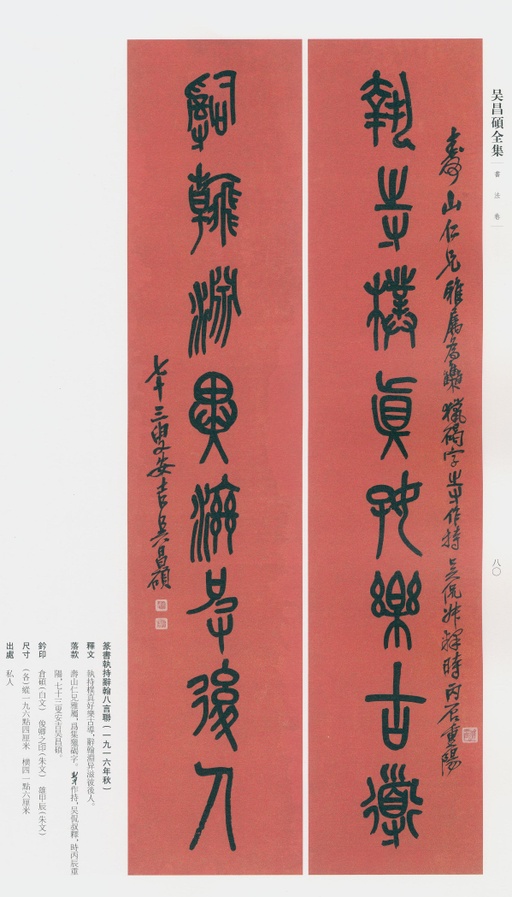 吴昌碩全集
書法卷
八〇
壽山仁兄雅屬為集獵碣字㞢作持吳侃叔釋時丙辰重陽
執㞢樸真好樂古導
辭翰淵異滋㝵後人
七十三叟安吉吳昌碩
篆書執持辭翰八言聯(一九一六年秋)
釋文 執持樸真好樂古導,辭翰淵异滋彼後人。
落款 壽山仁兄雅屬,爲集獵碣字。㞢作持,吳侃叔釋,時丙辰重
陽,七十三叟安吉吳昌碩。
鈐印 倉碩(白文) 俊卿之印(朱文) 雄甲辰(朱文)
尺寸 (各)縱一九六點四厘米 橫四一點六厘米
出處 私人